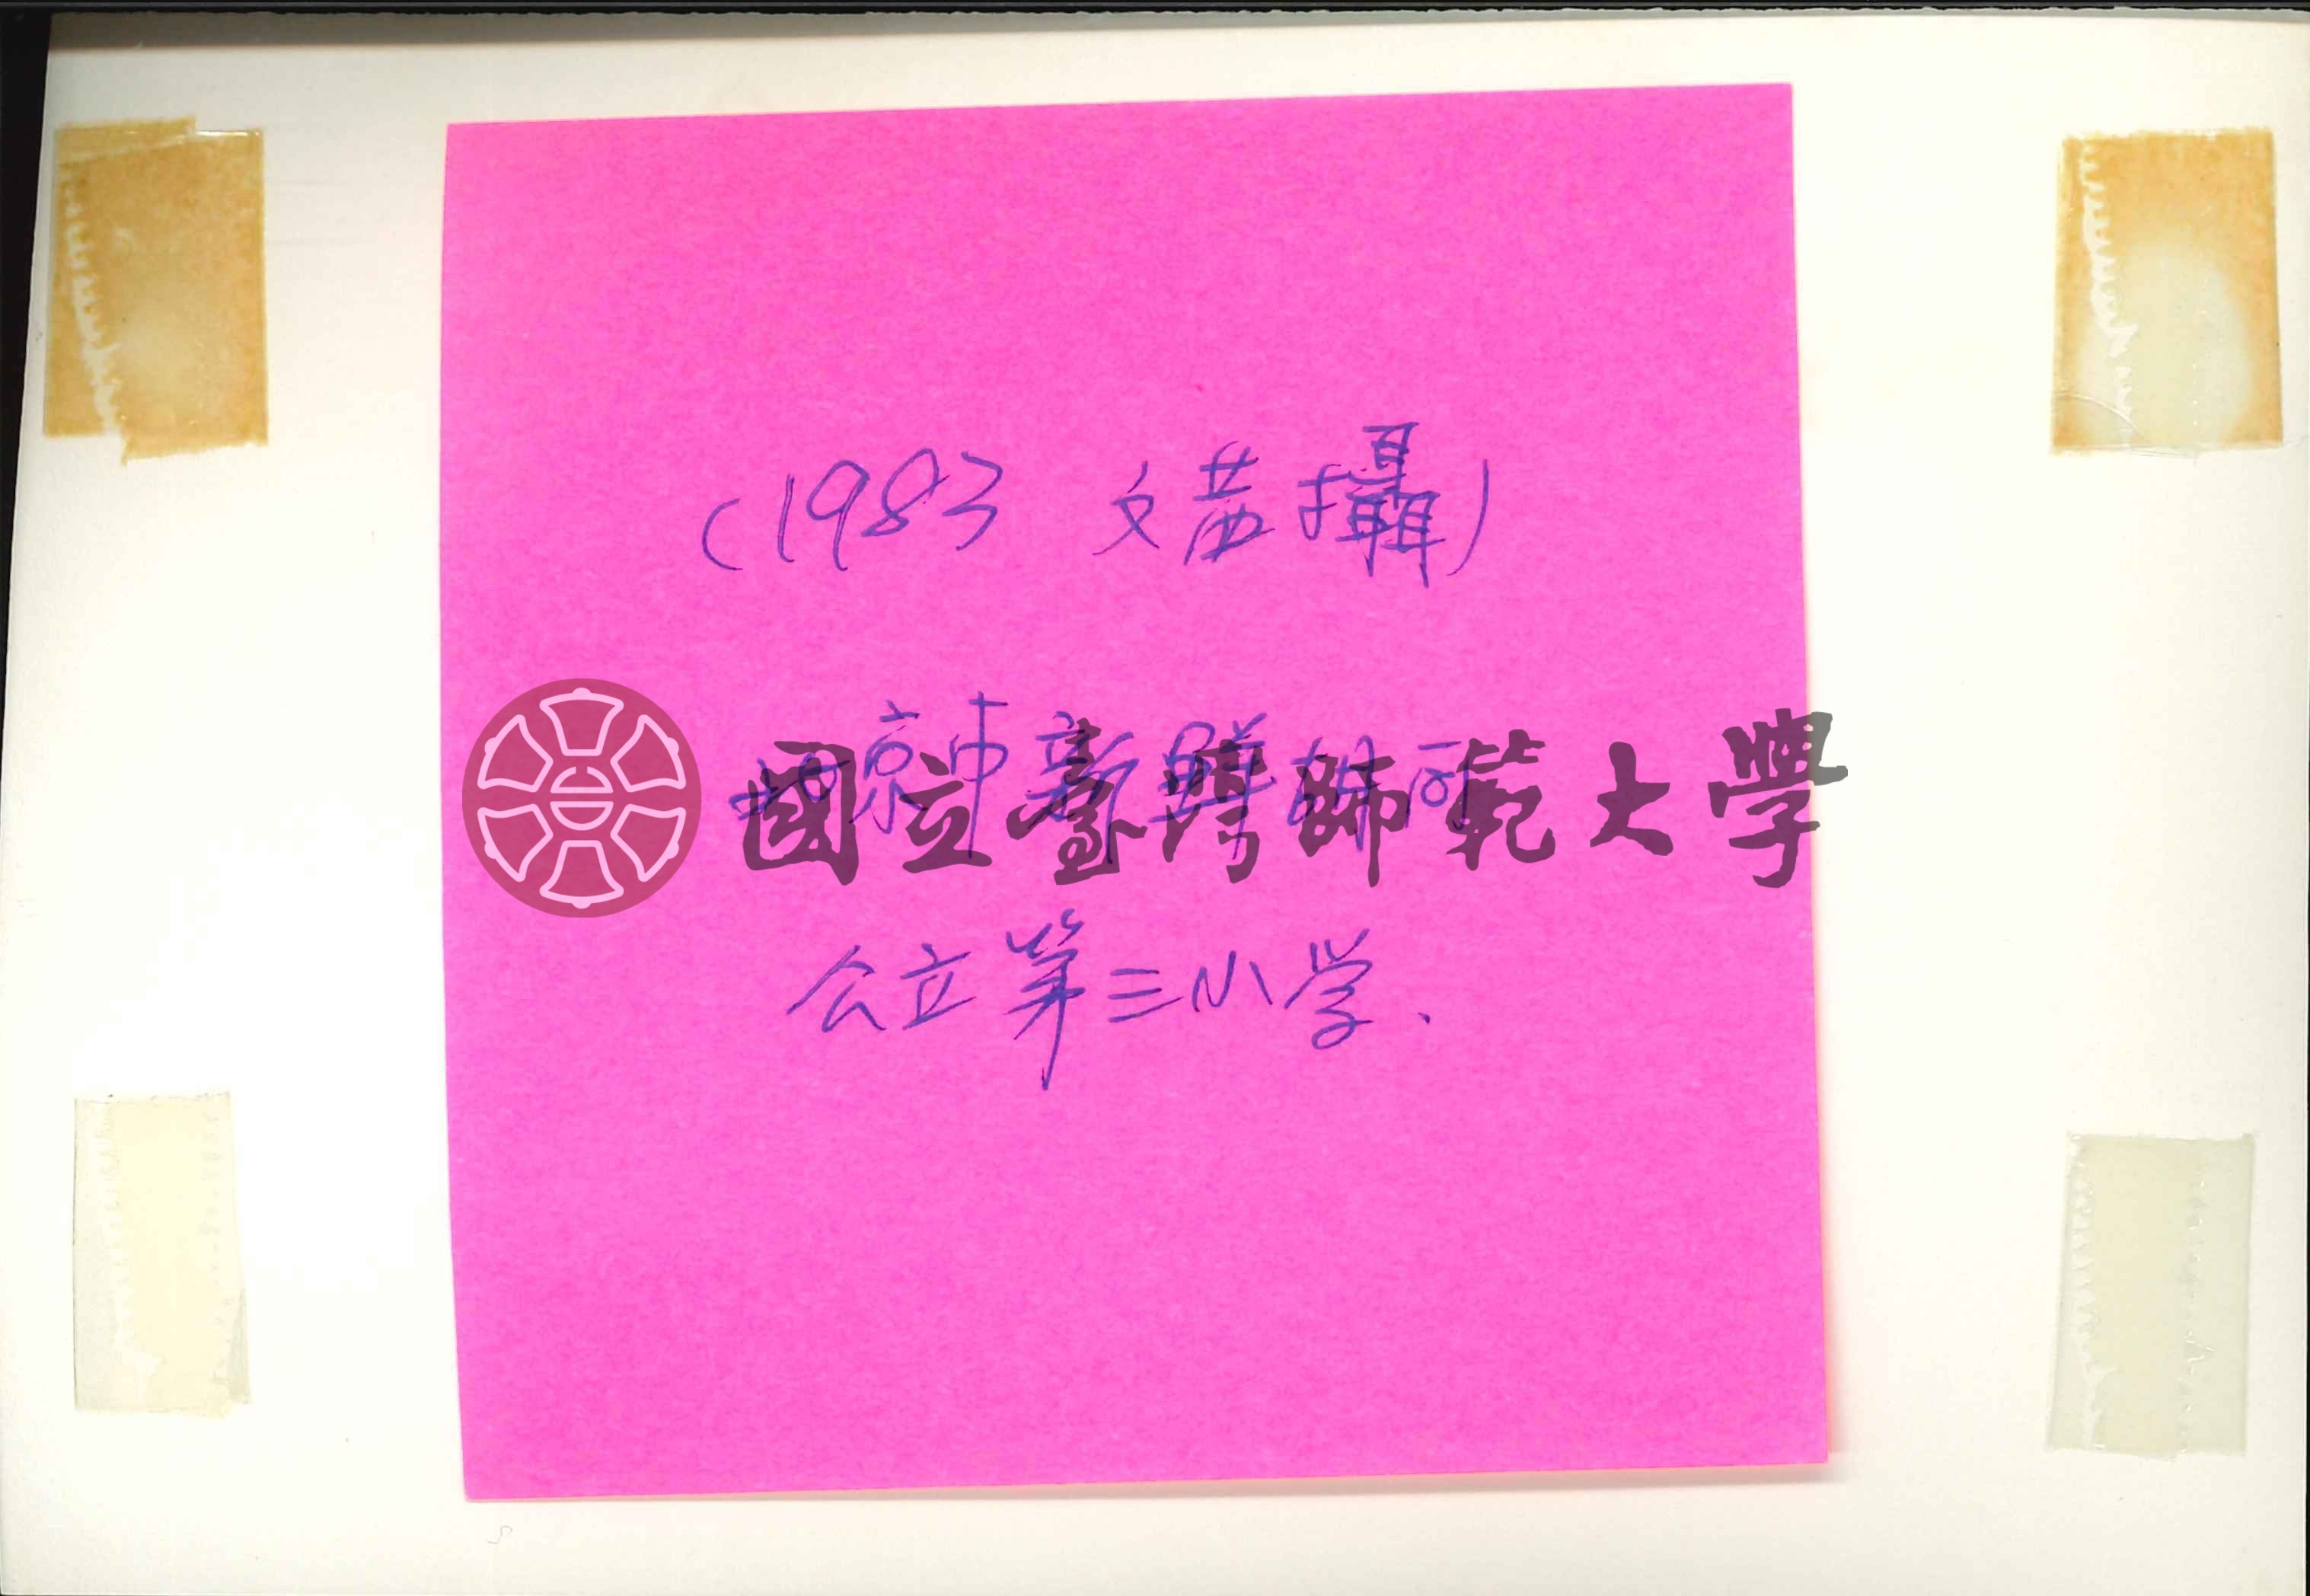 (1983 文茜攝)
北京市新鮮胡同
國立臺灣師範大學
公立第三小学.